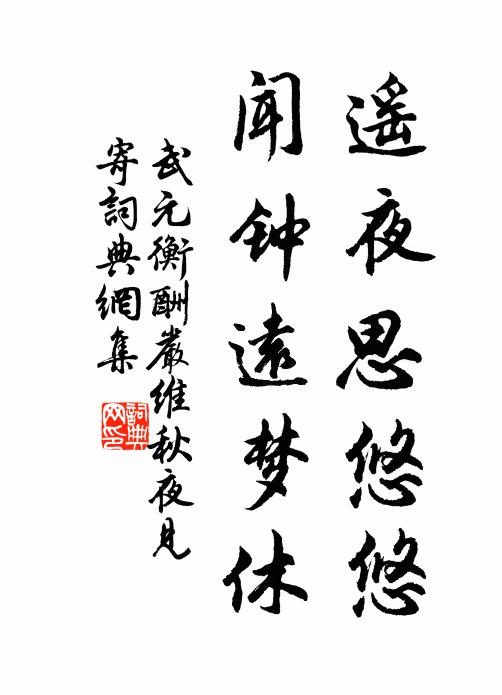 遥夜思悠悠
闻钟遠梦休
武元衡酬嚴维秋夜見
寄詞典網集
詞典
网印